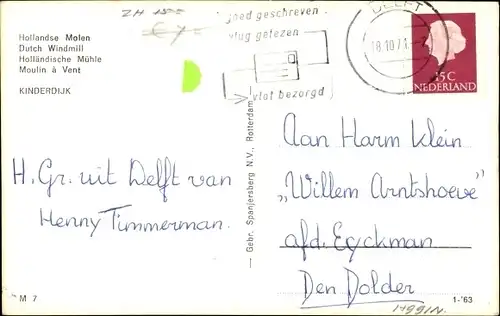 ZH 15=
Hollandse Molen
Dutch Windmill
Holländische Mühle
Moulin à Vent
KINDERDIJK
goed geschreven
vlug gelezen
vlot bezorgd
DELFT
18.10.71
15 C
NEDERLAND
H. Gr. uit Delft van
Henny Timmerman.
Gebr. Spanjersberg N.V., Rotterdam
Aan Harm Klein
„Willem Arntshoeve"
afd. Eyckman
Den Dolder
M 7
1-'63